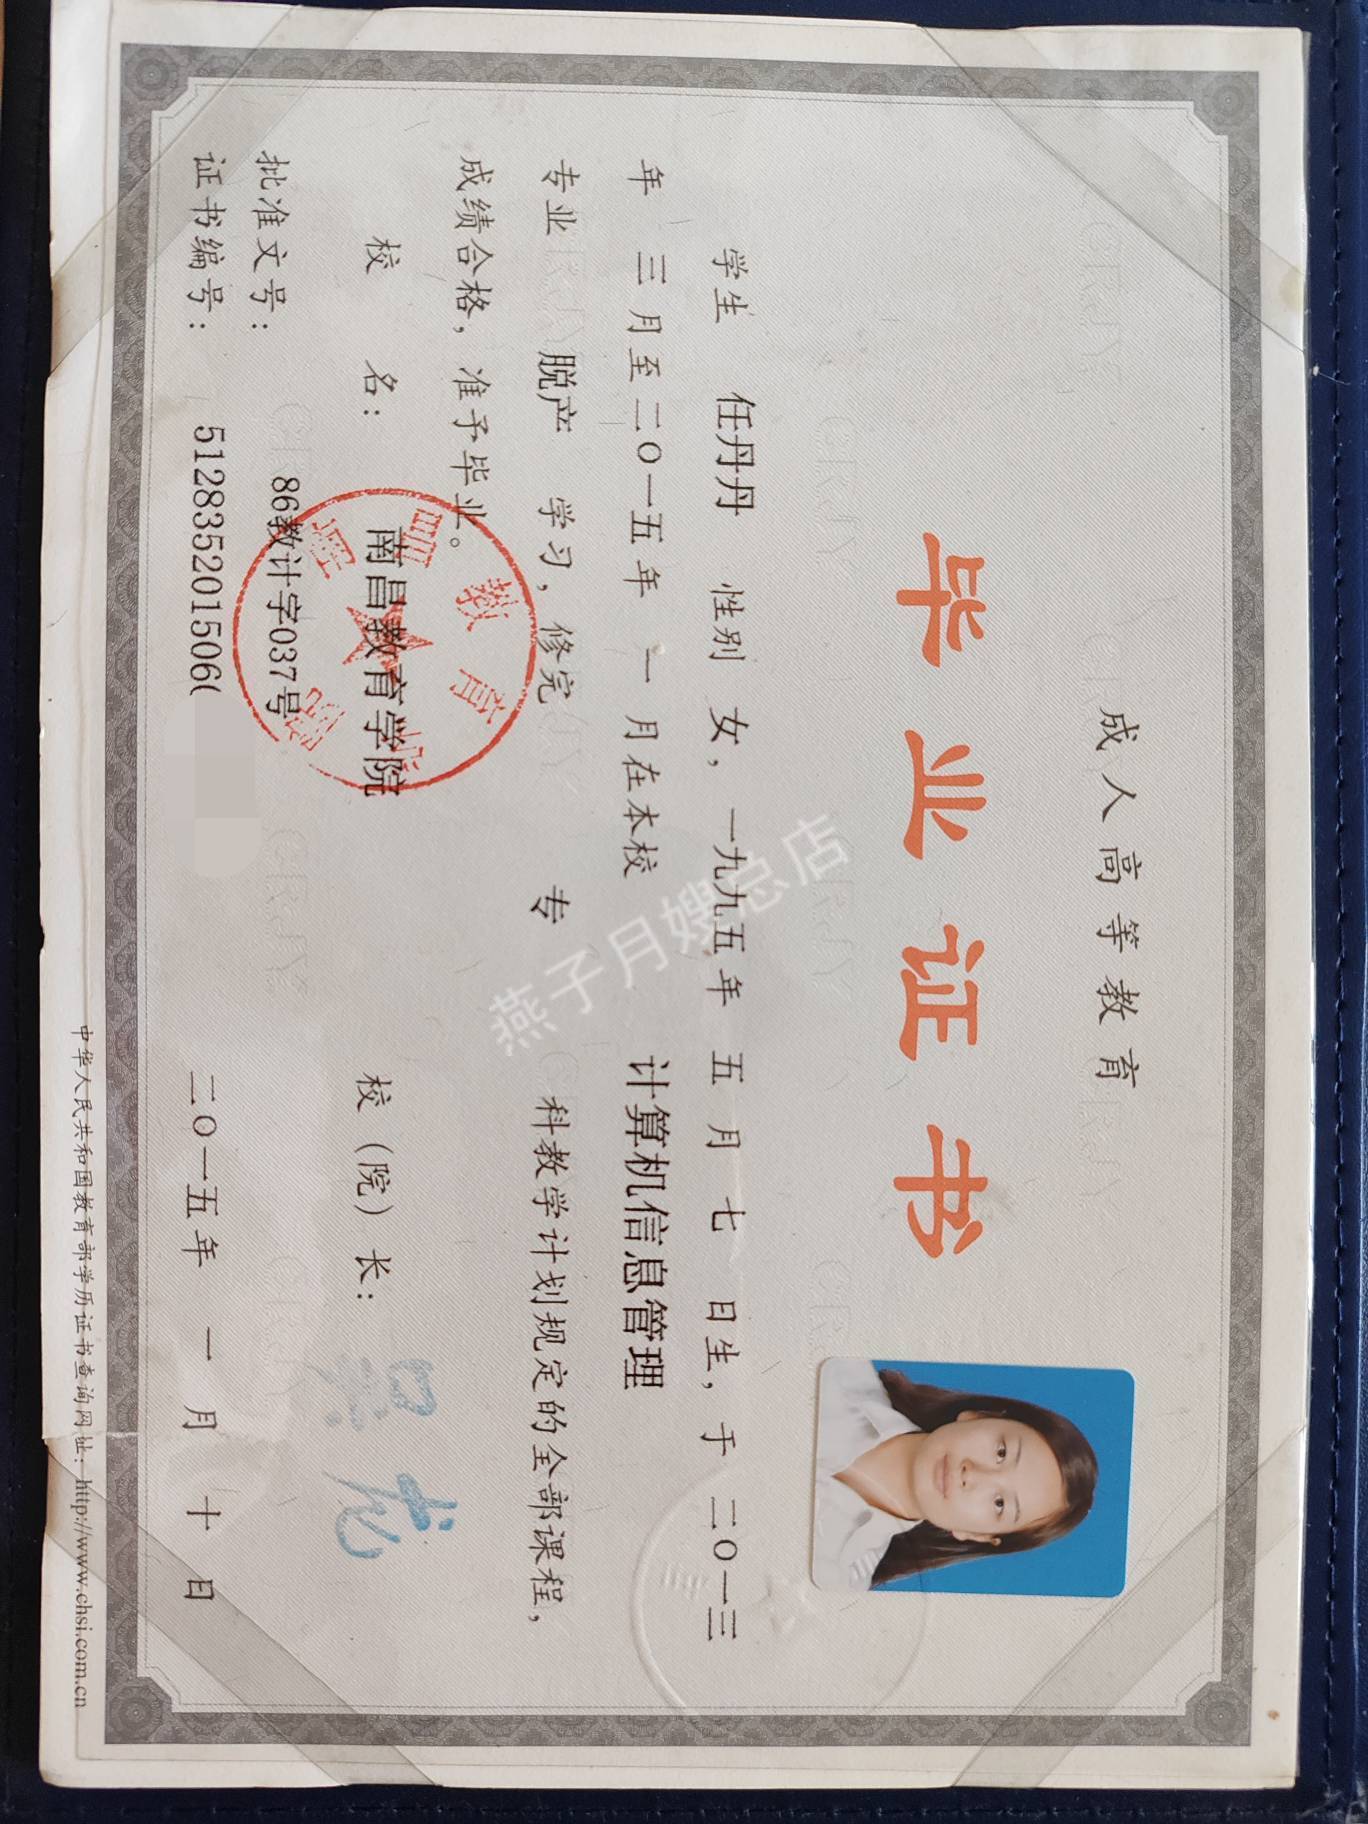 成人高等教育
毕业证书
学生 任丹丹 性别 女，一九九五年 五月 七 日生，于 二〇一三
年 三月至二〇一五年 一 月在本校 计算机信息管理
专业 脱产 学习，修完 专 科教学计划规定的全部课程，
成绩合格，准予毕业。
校 名：南昌教育学院 校（院）长：
批准文号：86教计字037号
证书编号：512835201506( 二〇一五年 一 月 十 日
中华人民共和国教育部学历证书查询网址：http://www.chsi.com.cn
燕子月嫂总店